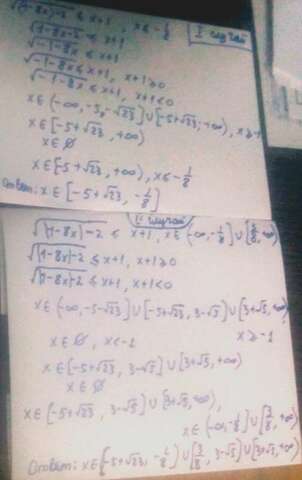 √|1-8x|-2 ≤ x+1, x ≤ -1/8
I случай
√1-8x-2 ≤ x+1
√-1-8x ≤ x+1
√-1-8x ≤ x+1, x+1≥0
√-1-8x ≤ x+1, x+1<0
x∈(-∞,-5-√23]∪[-5+√23,+∞), x≥-1
x∈[-5+√23,+∞)
x∈∅
x∈[-5+√23,+∞), x≤-1/8
Ответ: x∈[-5+√23, -1/8]
II случай
√|1-8x|-2 ≤ x+1, x∈(-∞,-1/8]∪[3/8,+∞)
√|1-8x|-2 ≤ x+1, x+1≥0
√|1-8x|-2 ≤ x+1, x+1<0
x∈(-∞,-5-√23]∪[-5+√23, 3-√5]∪[3+√5,+∞)
x≥-1
x∈∅, x<-1
x∈[-5+√23, 3-√5]∪[3+√5,+∞)
x∈∅
x∈[-5+√23, 3-√5]∪[3+√5,+∞),
x∈(-∞,-1/8]∪[3/8,+∞)
Ответ: x∈[-5+√23, -1/8]∪[3/8, 3-√5]∪[3+√5,+∞)